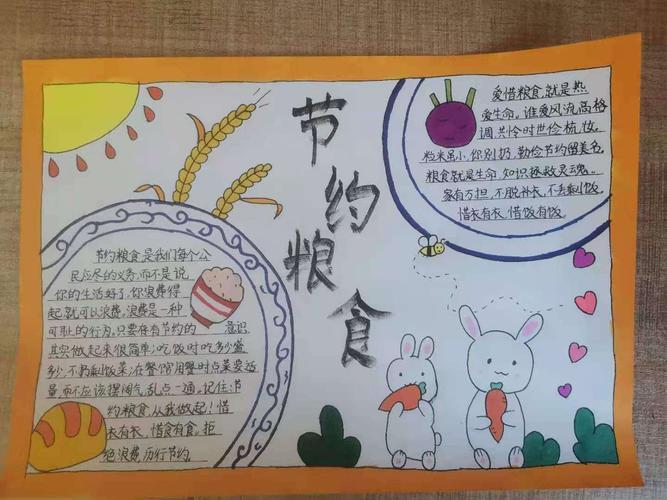 节约粮食
节约粮食是我们每个公
民应尽的义务,而不是说
你的生活好了,你浪费得
起就可以浪费,浪费是一种
可耻的行为。只要存有节约的意识
其实做起来很简单:吃饭时吃多少盛
多少,不剩饭菜;在餐馆用餐时点菜要适
量,而不应该摆阔气,乱点一通,记住:节
约粮食,从我做起!惜
衣有衣,惜食有食,拒
绝浪费,厉行节约。
爱惜粮食,就是热
爱生命,谁爱风流高格
调,共怜时世俭梳妆。
粒米虽小,你别扔,勤俭节约留美名
粮食就是生命,知识拯救灵魂。
家有万担,不脱补衣,不丢剩饭。
惜衣有衣,惜饭有饭。